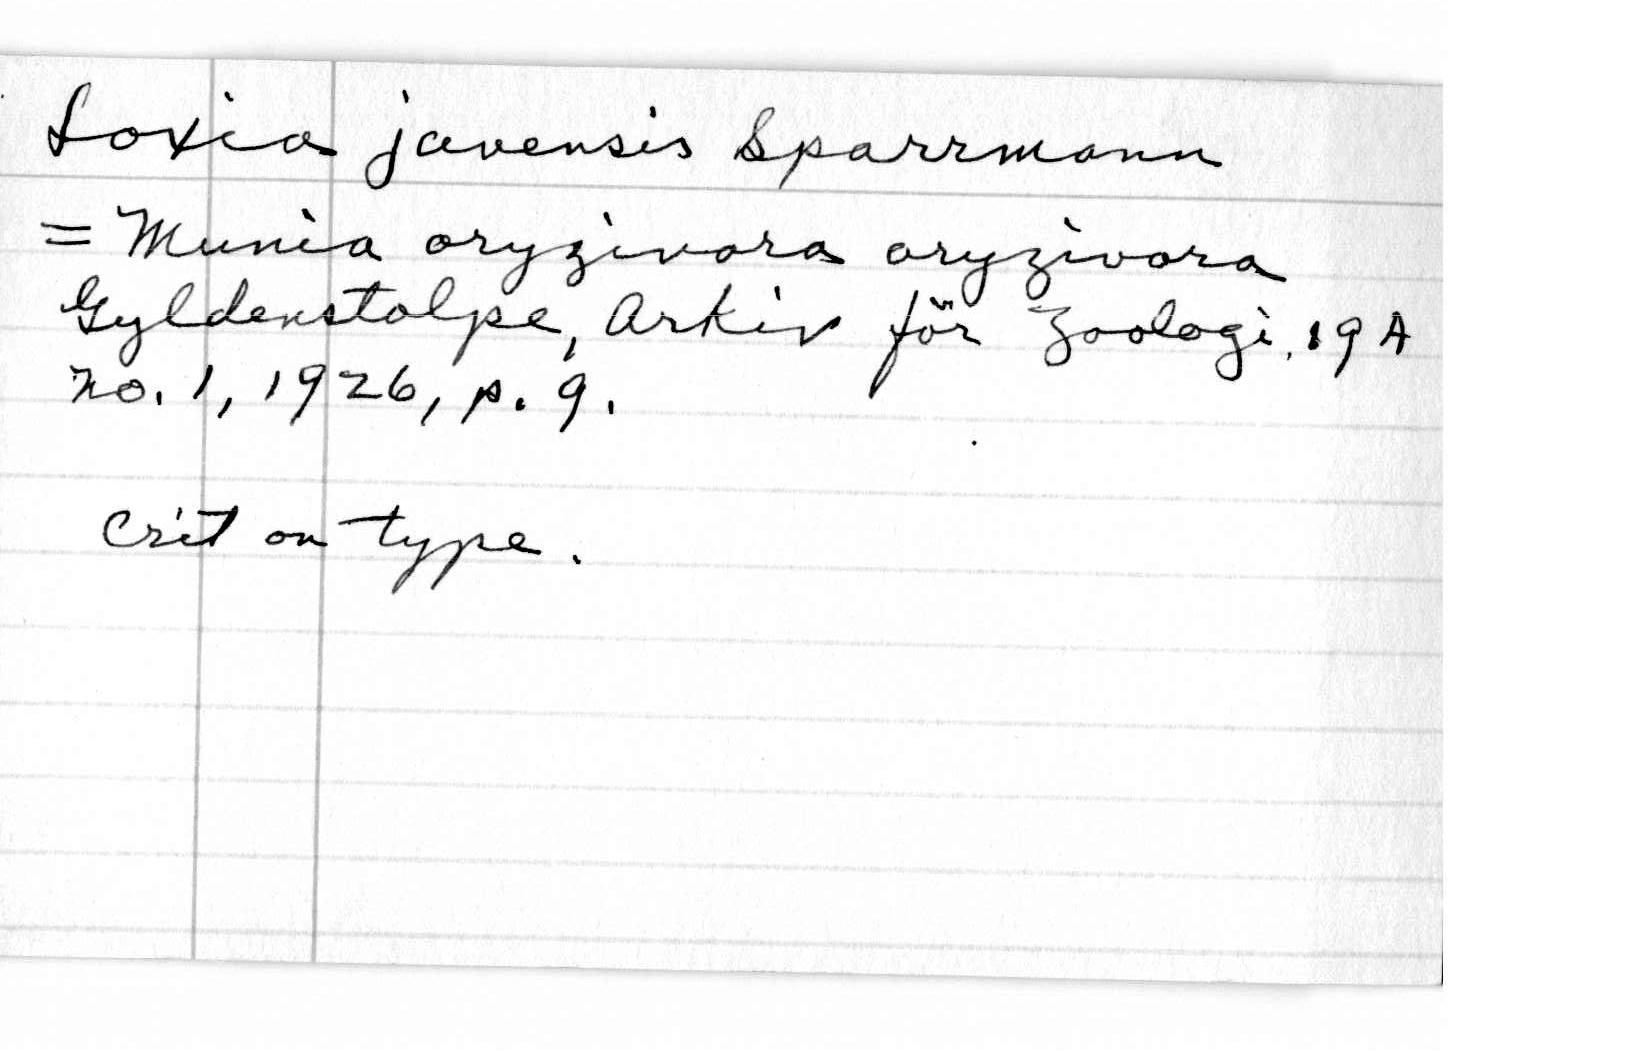 Loxia javensis Sparrmann
= Munia oryzivora oryzivora
Gyldenstolpe, Arkiv för Zoologi, 19A
no. 1, 1926, p. 9.
Crit on type.